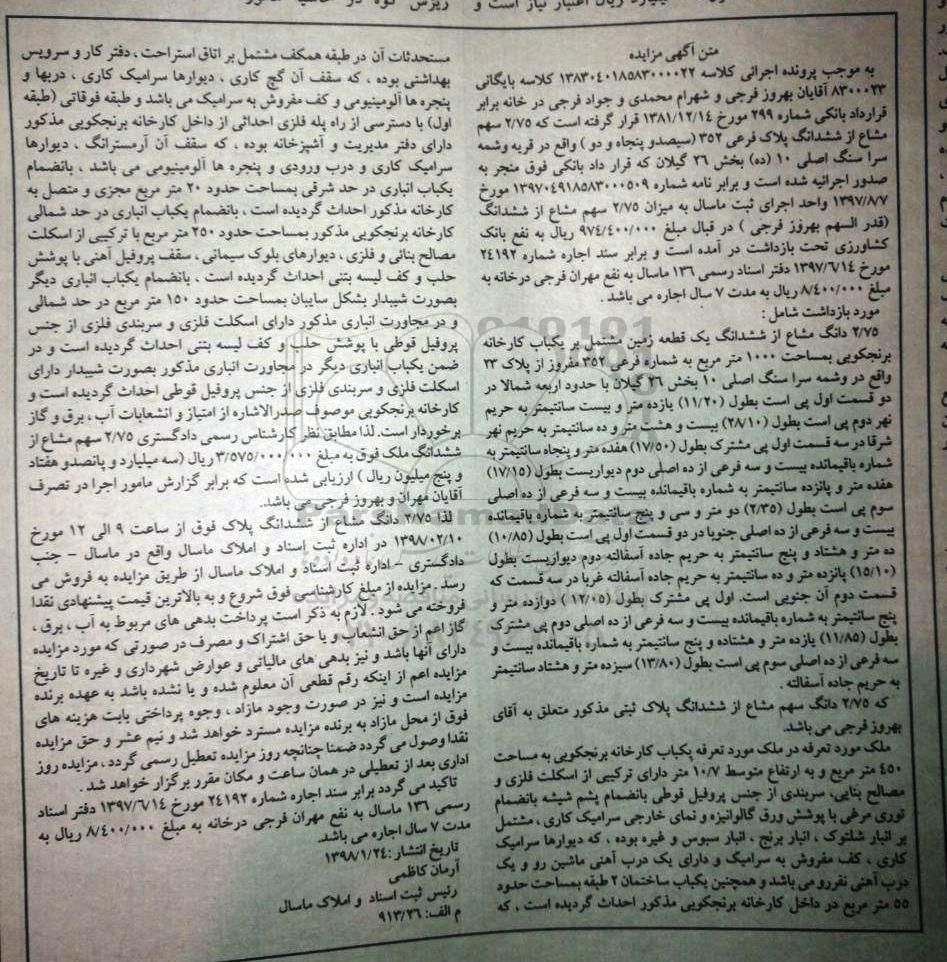 متن آگهی مزایده
به موجب پرونده اجرائی کلاسه ۱۳۸۳۰۴۰۱۸۵۸۳۰۰۰۰۲۲ کلاسه بایگانی
۸۳۰۰۰۲۳ آقایان بهروز فرجی و شهرام محمدی و جواد فرجی در خانه برابر
قرارداد بانکی شماره ۲۹۹ مورخ ۱۳۸۱/۱۲/۱۴ قرار گرفته است که ۲/۷۵ سهم
مشاع از ششدانگ پلاک فرعی ۳۵۲ (سیصدو پنجاه و دو ) واقع در قریه وشمه
سرا سنگ اصلی ۱۰ (ده) بخش ۲۶ گیلان که قرار داد بانکی فوق منجر به
صدور اجرائیه شده است و برابر نامه شماره ۱۳۹۷۰۴۹۱۸۵۸۳۰۰۰۵۰۹ مورخ
۱۳۹۷/۸/۷ واحد اجرای ثبت ماسال به میزان ۲/۷۵ سهم مشاع از ششدانگ
(قدر السهم بهروز فرجی ) در قبال مبلغ ۹۷۴/۴۰۰/۰۰۰ ریال به نفع بانک
کشاورزی تحت بازداشت در آمده است و برابر سند اجاره شماره ۲۴۱۹۲
مورخ ۱۳۹۷/۶/۱۴ دفتر اسناد رسمی ۱۳۶ ماسال به نفع مهران فرجی درخانه به
مبلغ ۸/۴۰۰/۰۰۰ ریال به مدت ۷ سال اجاره می باشد .
مورد بازداشت شامل :
۲/۷۵ دانگ مشاع از ششدانگ یک قطعه زمین مشتمل بر یکباب کارخانه
برنجکوبی بمساحت ۱۰۰۰ متر مربع به شماره فرعی ۳۵۲ مفروز از پلاک ۲۳
واقع در وشمه سرا سنگ اصلی ۱۰ بخش ۲۶ گیلان با حدود اربعه شمالا در
دو قسمت اول پی است بطول (۱۱/۲۰) یازده متر و بیست سانتیمتر به حریم
نهر دوم پی است بطول (۲۸/۱۰) بیست و هشت متر و ده سانتیمتر به حریم نهر
شرقا در سه قسمت اول پی مشترک بطول (۱۷/۵۰) هفده متر و پنجاه سانتیمتر به
شماره باقیمانده بیست و سه فرعی از ده اصلی دوم دیواریست بطول (۱۷/۱۵)
هفده متر و پانزده سانتیمتر به شماره باقیمانده بیست و سه فرعی از ده اصلی
سوم پی است بطول (۲/۳۵) دو متر و سی و پنج سانتیمتر به شماره باقیمانده
بیست و سه فرعی از ده اصلی جنوبا در دو قسمت اول پی است بطول (۱۰/۸۵)
ده متر و هشتاد و پنج سانتیمتر به حریم جاده آسفالته دوم دیواریست بطول
(۱۵/۱۰) پانزده متر و ده سانتیمتر به حریم جاده آسفالته غربا در سه قسمت که
قسمت دوم آن جنوبی است. اول پی مشترک بطول (۱۲/۰۵ ) دوازده متر و
پنج سانتیمتر به شماره باقیمانده بیست و سه فرعی از ده اصلی دوم پی مشترک
بطول (۱۱/۸۵) یازده متر و هشتاده و پنج سانتیمتر به شماره باقیمانده بیست و
سه فرعی از ده اصلی سوم پی است بطول (۱۳/۸۰) سیزده متر و هشتاد سانتیمتر
به حریم جاده آسفالته .
که ۲/۷۵ دانگ سهم مشاع از ششدانگ پلاک ثبتی مذکور متعلق به آقای
بهروز فرجی می باشد.
ملک مورد تعرفه در ملک مورد تعرفه یکباب کارخانه برنجکوبی به مساحت
۴۵۰ متر مربع و به ارتفاع متوسط ۱۰/۷ متر دارای ترکیبی از اسکلت فلزی و
مصالح بنایی، سربندی از جنس پروفیل قوطی بانضمام پشم شیشه بانضمام
توری مرغی با پوشش ورق گالوانیزه و نمای خارجی سرامیک کاری ، مشتمل
بر انبار شلتوک ، انبار برنج ، انبار سبوس و غیره بوده ، که دیوارها سرامیک
کاری ، کف مفروش به سرامیک و دارای یک درب آهنی ماشین رو و یک
درب آهنی نفررو می باشد و همچنین یکباب ساختمان ۲ طبقه بمساحت حدود
۵۵ متر مربع در داخل کارخانه برنجکوبی مذکور احداث گردیده است ، که
مستحدثات آن در طبقه همکف مشتمل بر اتاق استراحت ، دفتر کار و سرویس
بهداشتی بوده ، که سقف آن گچ کاری ، دیوارها سرامیک کاری ، دربها و
پنجره ها آلومینیومی و کف مفروش به سرامیک می باشد و طبقه فوقانی (طبقه
اول) با دسترسی از راه پله فلزی احداثی از داخل کارخانه برنجکوبی مذکور
دارای دفتر مدیریت و آشپزخانه بوده ، که سقف آن آرمسترانگ ، دیوارها
سرامیک کاری و درب ورودی و پنجره ها آلومینیومی می باشد ، بانضمام
یکباب انباری در حد شرقی بمساحت حدود ۲۰ متر مربع مجزی و متصل به
کارخانه مذکور احداث گردیده است ، بانضمام یکباب انباری در حد شمالی
کارخانه برنجکوبی مذکور بمساحت حدود ۲۵۰ متر مربع با ترکیبی از اسکلت
مصالح بنائی و فلزی ، دیوارهای بلوک سیمانی ، سقف پروفیل آهنی با پوشش
حلب و کف لیسه بتنی احداث گردیده است ، بانضمام یکباب انباری دیگر
بصورت شیبدار بشکل سایبان بمساحت حدود ۱۵۰ متر مربع در حد شمالی
و در مجاورت انباری مذکور دارای اسکلت فلزی و سربندی فلزی از جنس
پروفیل قوطی با پوشش حلب و کف لیسه بتنی احداث گردیده است و در
ضمن یکباب انباری دیگر در مجاورت انباری مذکور بصورت شیبدار دارای
اسکلت فلزی و سربندی فلزی از جنس پروفیل قوطی احداث گردیده است و
کارخانه برنجکوبی موصوف صدرالاشاره از امتیاز و انشعابات آب ، برق و گاز
برخوردار است. لذا مطابق نظر کارشناس رسمی دادگستری ۲/۷۵ سهم مشاع از
ششدانگ ملک فوق به مبلغ ۳/۵۷۵/۰۰۰/۰۰۰ ریال (سه میلیارد و پانصدو هفتاد
و پنج میلیون ریال ) ارزیابی شده است که برابر گزارش مامور اجرا در تصرف
آقایان مهران و بهروز فرجی می باشد.
لذا ۲/۷۵ دانگ مشاع از ششدانگ پلاک فوق از ساعت ۹ الی ۱۲ مورخ
۱۳۹۸/۰۲/۱۰ در اداره ثبت اسناد و املاک ماسال واقع در ماسال - جنب
دادگستری - اداره ثبت اسناد و املاک ماسال از طریق مزایده به فروش می
رسد . مزایده از مبلغ کارشناسی فوق شروع و به بالاترین قیمت پیشنهادی نقدا
فروخته می شود . لازم به ذکر است پرداخت بدهی های مربوط به آب ، برق ،
گاز اعم از حق انشعاب و یا حق اشتراک و مصرف در صورتی که مورد مزایده
دارای آنها باشد و نیز بدهی های مالیاتی و عوارض شهرداری و غیره تا تاریخ
مزایده اعم از اینکه رقم قطعی آن معلوم شده و یا نشده باشد به عهده برنده
مزایده است و نیز در صورت وجود مازاد ، وجوه پرداختی بابت هزینه های
فوق از محل مازاد به برنده مزایده مسترد خواهد شد و نیم عشر و حق مزایده
نقدا وصول می گردد ضمنا چنانچه روز مزایده تعطیل رسمی گردد ، مزایده روز
اداری بعد از تعطیلی در همان ساعت و مکان مقرر برگزار خواهد شد .
تاکید می گردد برابر سند اجاره شماره ۲۴۱۹۲ مورخ ۱۳۹۷/۶/۱۴ دفتر اسناد
رسمی ۱۳۶ ماسال به نفع مهران فرجی درخانه به مبلغ ۸/۴۰۰/۰۰۰ ریال به
مدت ۷ سال اجاره می باشد.
تاریخ انتشار :۱۳۹۸/۱/۲۴
آرمان کاظمی
رئیس ثبت اسناد و املاک ماسال
م الف: ۹۱۳/۳۶